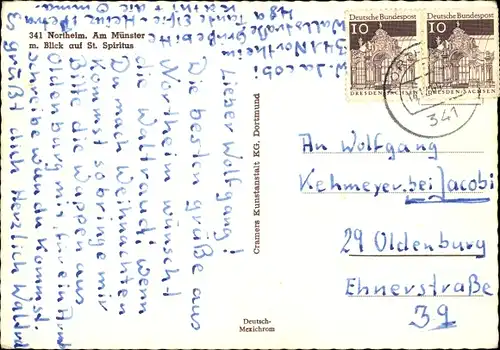 341 Northeim. Am Münster
m. Blick auf St. Spiritus
W. Jacobi
341 Northeim
Wallstraße
Lieber Wolfgang!
Die besten grüße aus
Northeim wünscht
die Waltraud, wenn
Du nach Weihnachten
Kommst so bringe mir
Bitte die Wappen aus
Oldenburg mit, für ein
schreibe wann du kommst.
Es grüßt dich Herzlich
Cramers Kunstanstalt KG, Dortmund
Deutsch-
Mexichrom
Deutsche Bundespost
10
DRESDEN-SACHSEN
Deutsche Bundespost
10
DRESDEN-SACHSEN
341
An Wolfgang
Kehmeyer bei Jacobi
29 Oldenburg
Ehnerstraße
39